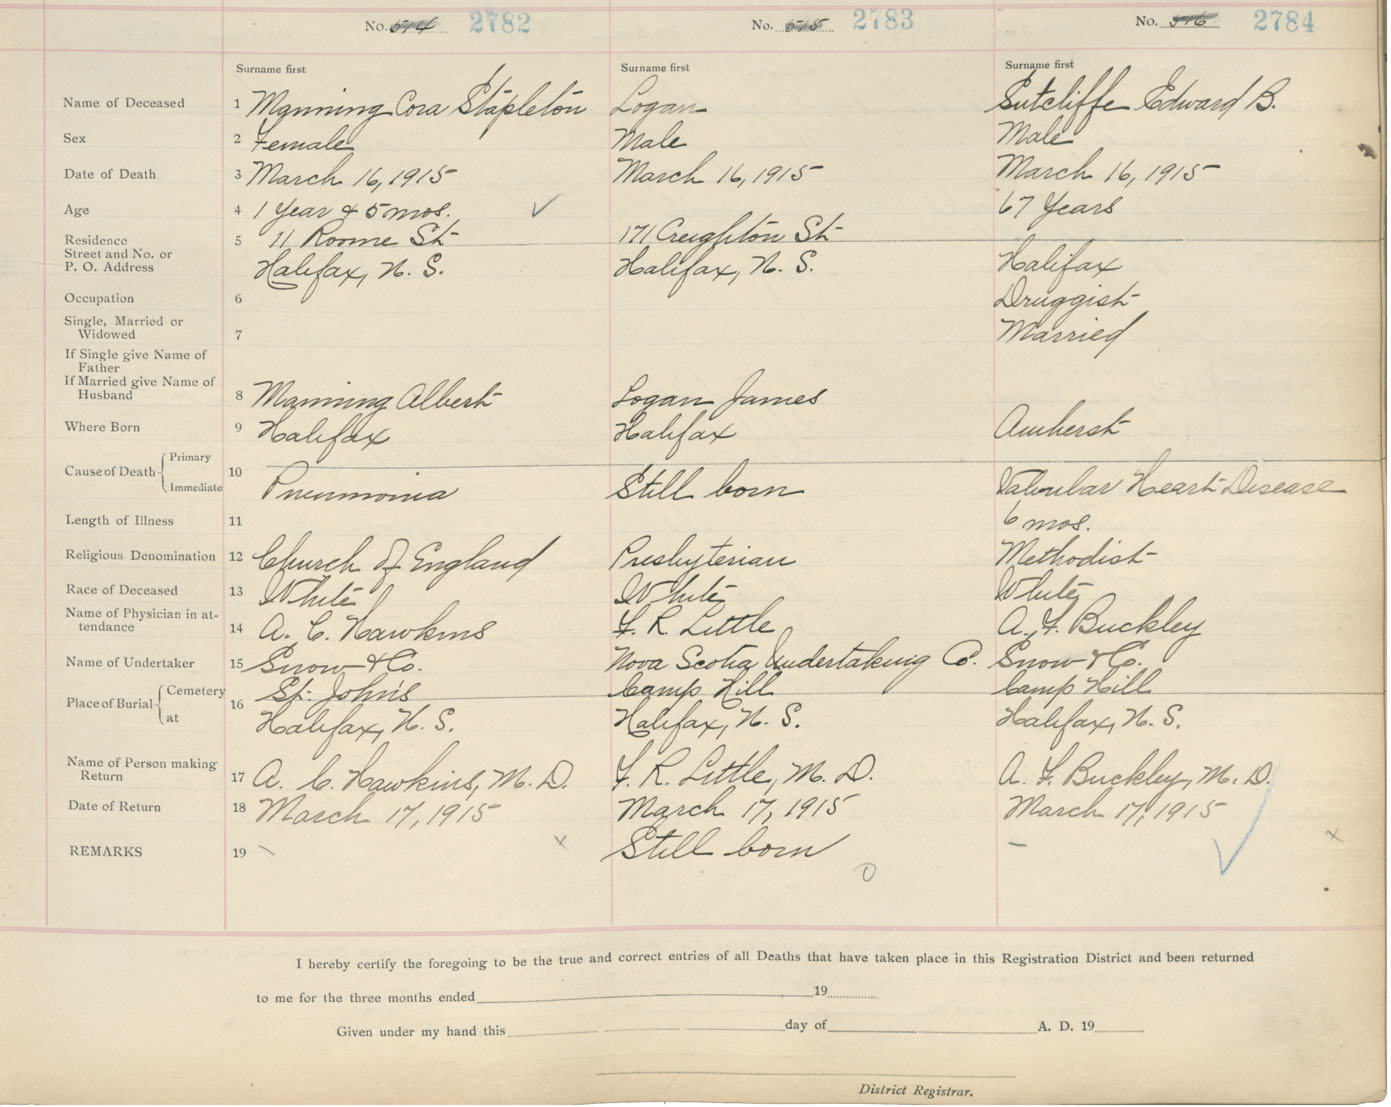 No. 514 2782 No. 515 2783 No. 516 2784
Surname first Surname first Surname first
Name of Deceased 1 Manning Cora Stapleton Logan Sutcliffe Edward B.
Sex 2 Female Male Male
Date of Death 3 March 16, 1915 March 16, 1915 March 16, 1915
Age 4 1 Year & 5 mos. 67 Years
Residence 5 11 Roome St 171 Creighton St
Street and No. or
P. O. Address Halifax, N. S. Halifax, N. S. Halifax
Occupation 6 Druggist
Single, Married or
Widowed 7 Married
If Single give Name of
Father
If Married give Name of
Husband 8 Manning Albert Logan James
Where Born 9 Halifax Halifax Amherst
Cause of Death Primary
Immediate 10 Pneumonia Still born Valvular Heart Disease
Length of Illness 11 6 mos.
Religious Denomination 12 Church of England Presbyterian Methodist
Race of Deceased 13 White White White
Name of Physician in at-
tendance 14 A. C. Hawkins F. R. Little A. F. Buckley
Name of Undertaker 15 Snow & Co. Nova Scotia Undertaking Co. Snow & Co.
Place of Burial Cemetery 16 St. John's Camp Hill Camp Hill
at Halifax, N. S. Halifax, N. S. Halifax, N. S.
Name of Person making
Return 17 A. C. Hawkins, M. D. F. R. Little, M. D. A. F. Buckley, M. D.
Date of Return 18 March 17, 1915 March 17, 1915 March 17, 1915
REMARKS 19 Still born
I hereby certify the foregoing to be the true and correct entries of all Deaths that have taken place in this Registration District and been returned
to me for the three months ended 19
Given under my hand this day of A. D. 19
District Registrar.